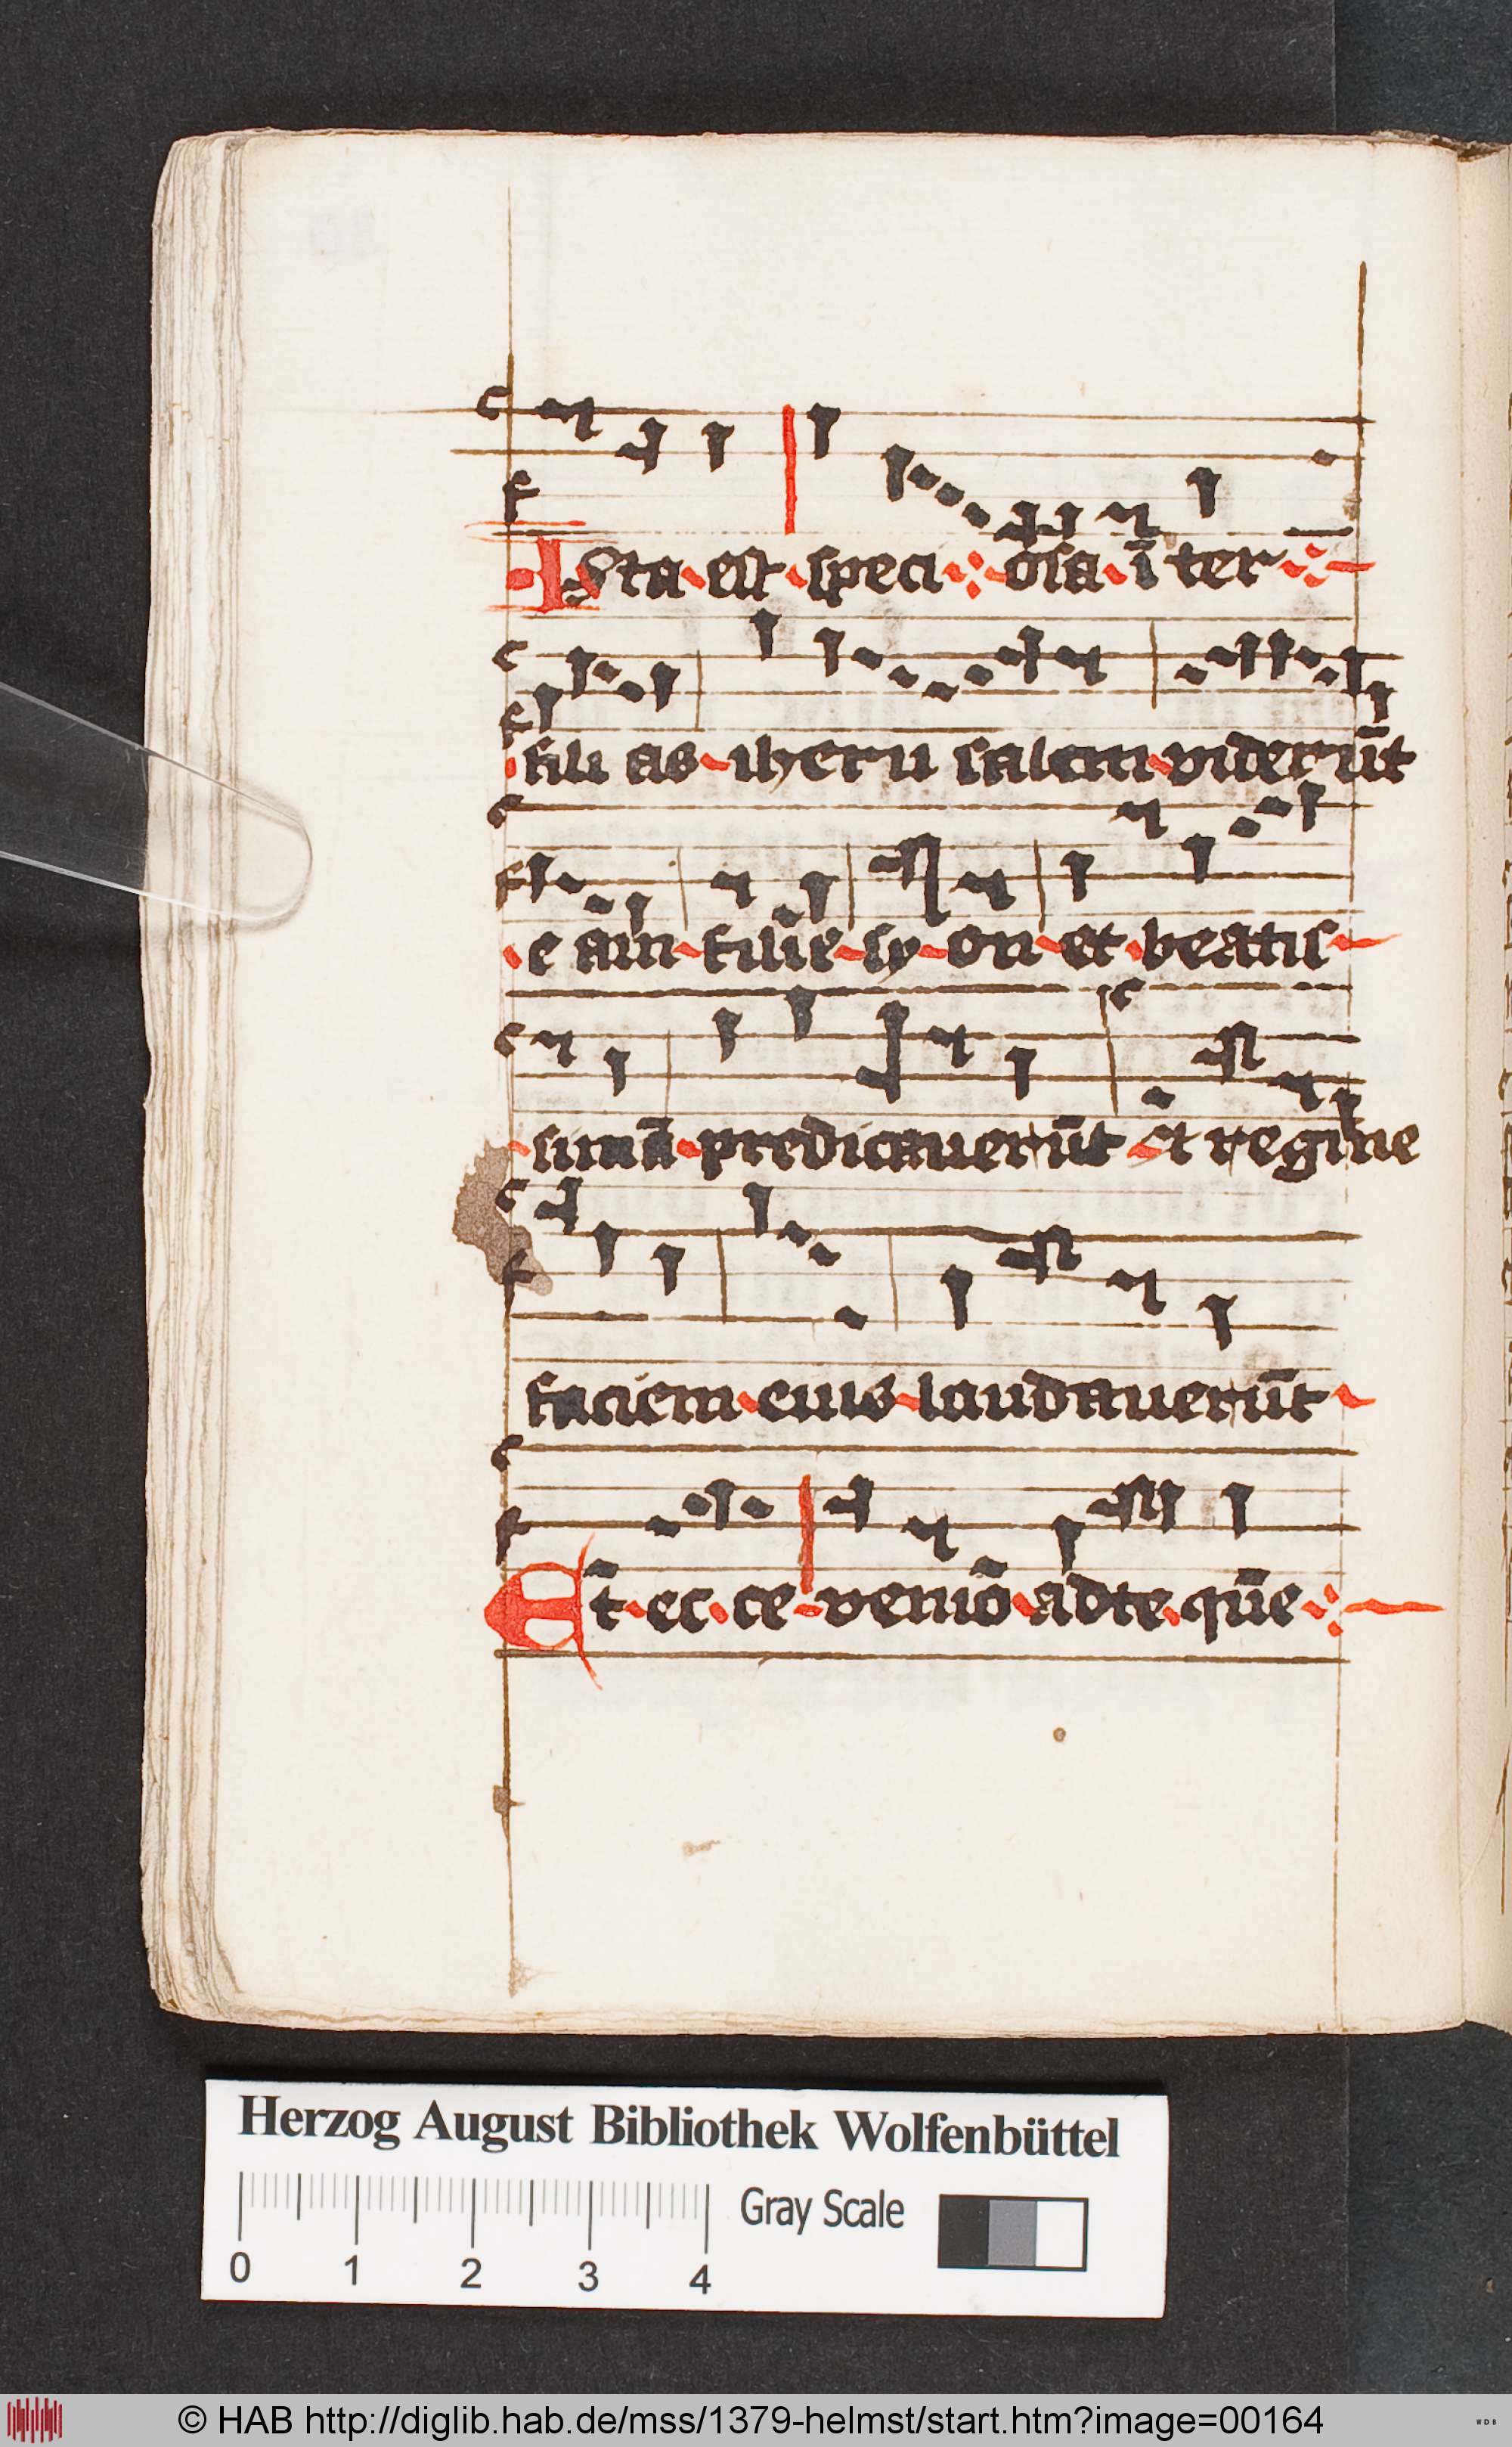 Ysta est speci osa īter
fili as iheru salem viderūt
e ām filīe sy on et beatis
simā predicauerūt Et regine
faciem eius laudauerūt
Et̄ ec ce veniō adte qūe
Herzog August Bibliothek Wolfenbüttel
Gray Scale
0 1 2 3 4
© HAB http://diglib.hab.de/mss/1379-helmst/start.htm?image=00164